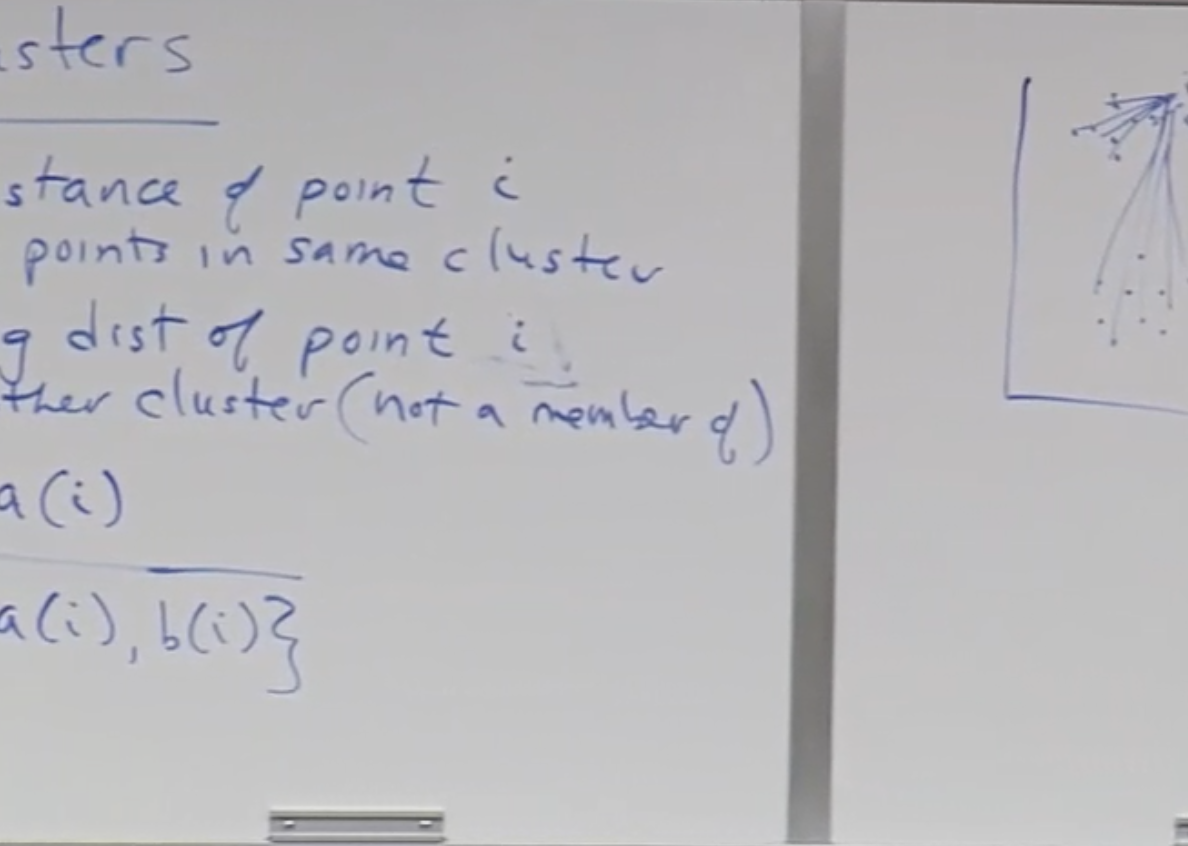 sters
stance of point i
points in same cluster
g dist of point i
ther cluster (not a member of)
a(i)
a(i), b(i)}